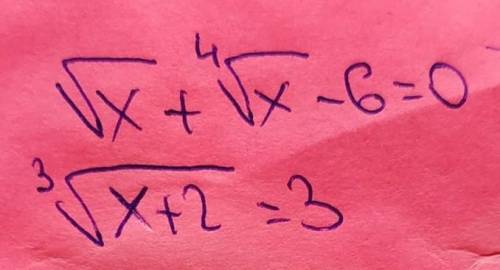 √x + ⁴√x - 6 = 0
³√(x+2) = 3